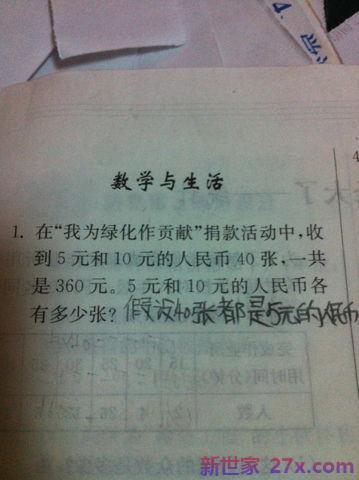 数学与生活
1. 在“我为绿化作贡献”捐款活动中，收
到5元和10元的人民币40张，一共
是360元。5元和10元的人民币各
有多少张？假设40张都是5元的纸币
人数
新世家 27x.com